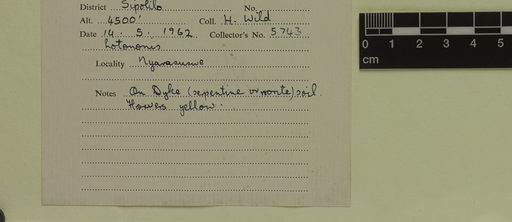 District Sipolilo No.
Alt. 4500' Coll. H. Wild
Date 14. 5. 1962 Collector's No. 5743
Lotononis
Locality Nyarasuswe
Notes On Dyke (serpentine or norite) soil.
Flowers yellow.
0 1 2 3 4 5
cm